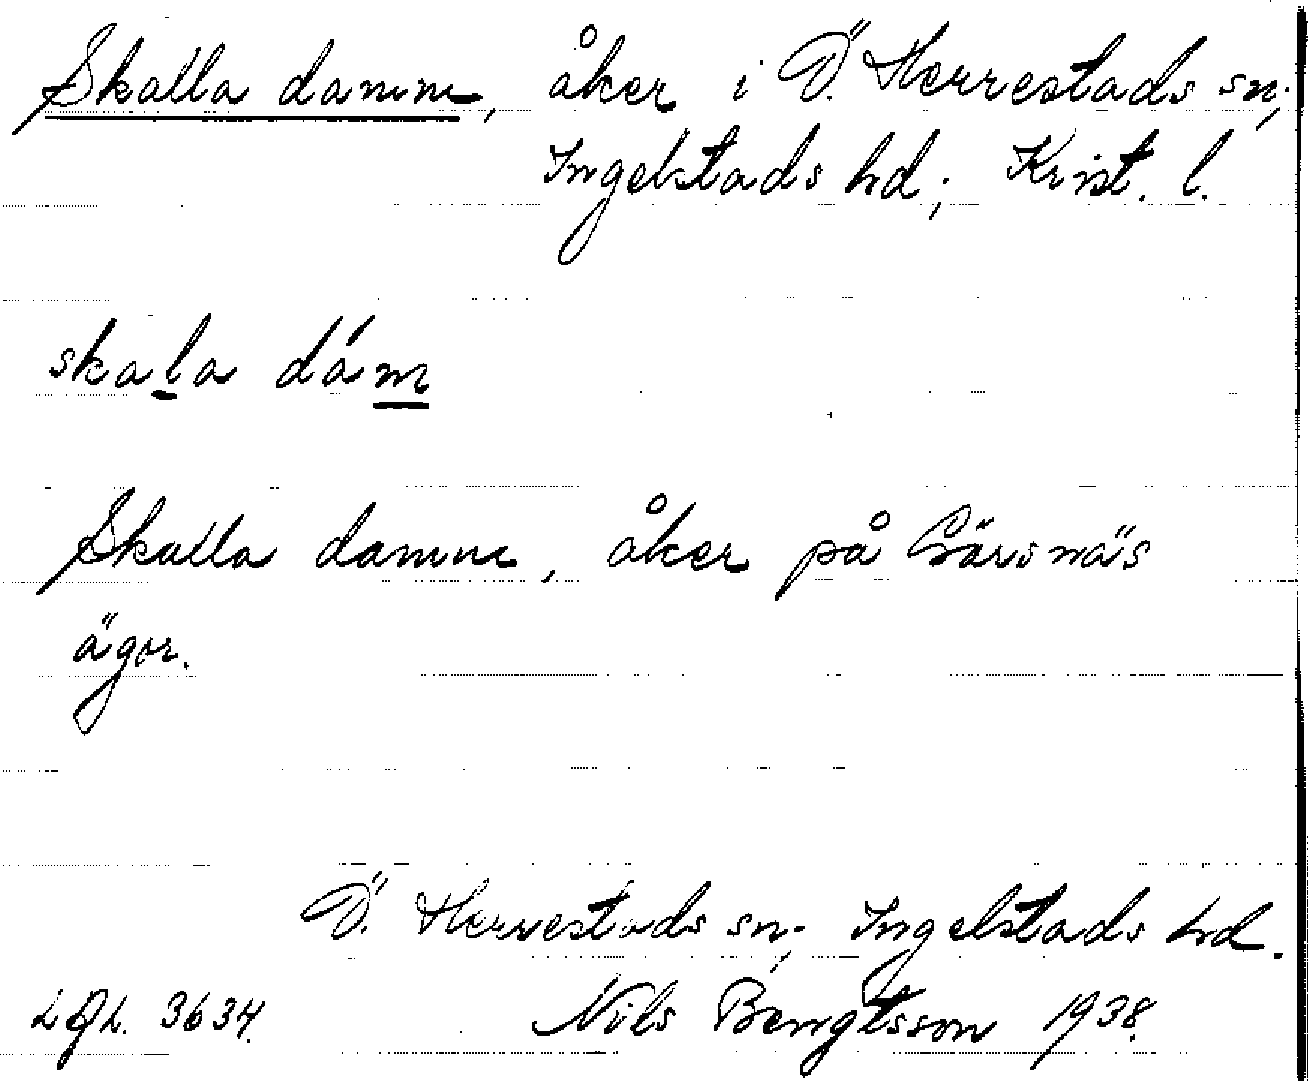 Skalla damm, åker i Ö. Herrestads sn;
Ingelstads hd; Krist. l.
skala dám
Skalla damm, åker på Gärsnäs
ägor.
Ö. Herrestads sn; Ingelstads hd.
3634. Nils Bengtsson 1938.